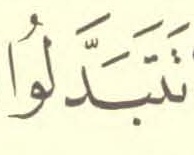 تَتَبَدَّلُوا